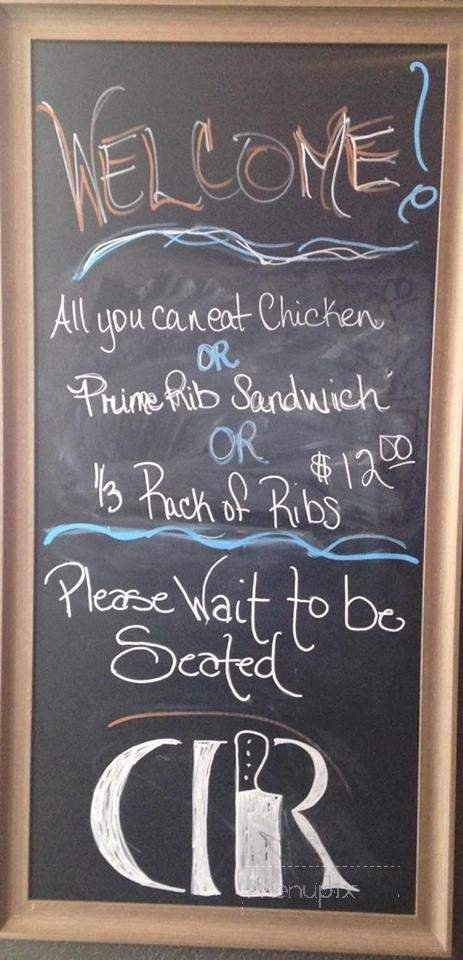 WELCOME!
All you can eat Chicken
OR
Prime Rib Sandwich
OR
$12.00
1/3 Rack of Ribs
Please Wait to be
Seated
CIR
menupix